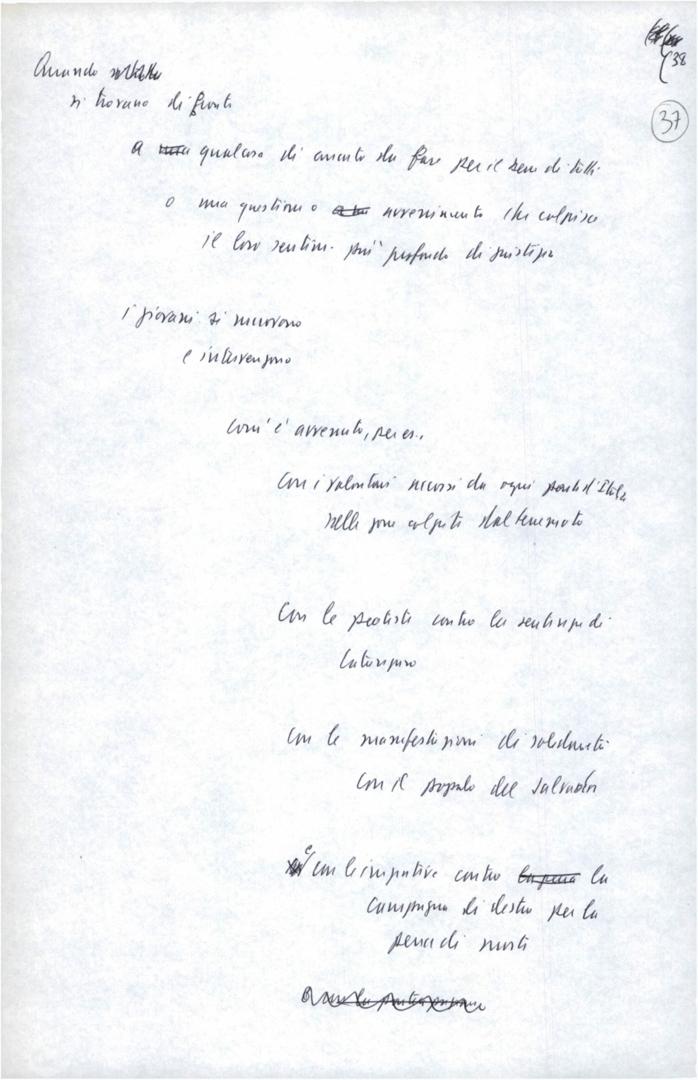 38
37
Quando
si trovano di fronte
a qualcosa di concreto da fare per il bene di tutti
o una questione o avvenimento che colpisce
il loro sentim. più profondo di giustizia
i giovani si muovono
e intervengono
Com'è avvenuto, per es.,
Con i volontari accorsi da ogni parte d'Italia
nelle zone colpite dal terremoto
Con le proteste contro la sentenza di
Catanzaro
Con le manifestazioni di solidarietà
con il popolo del Salvador
e con le iniziative contro la
Campagna di destra per la
pena di morte